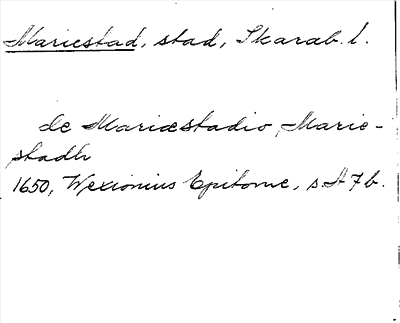 Mariestad, stad, Skarab. l.
de Mariæstadio, Marie-
stadh
1650, Wexionius Epitome, s. A 7 b.